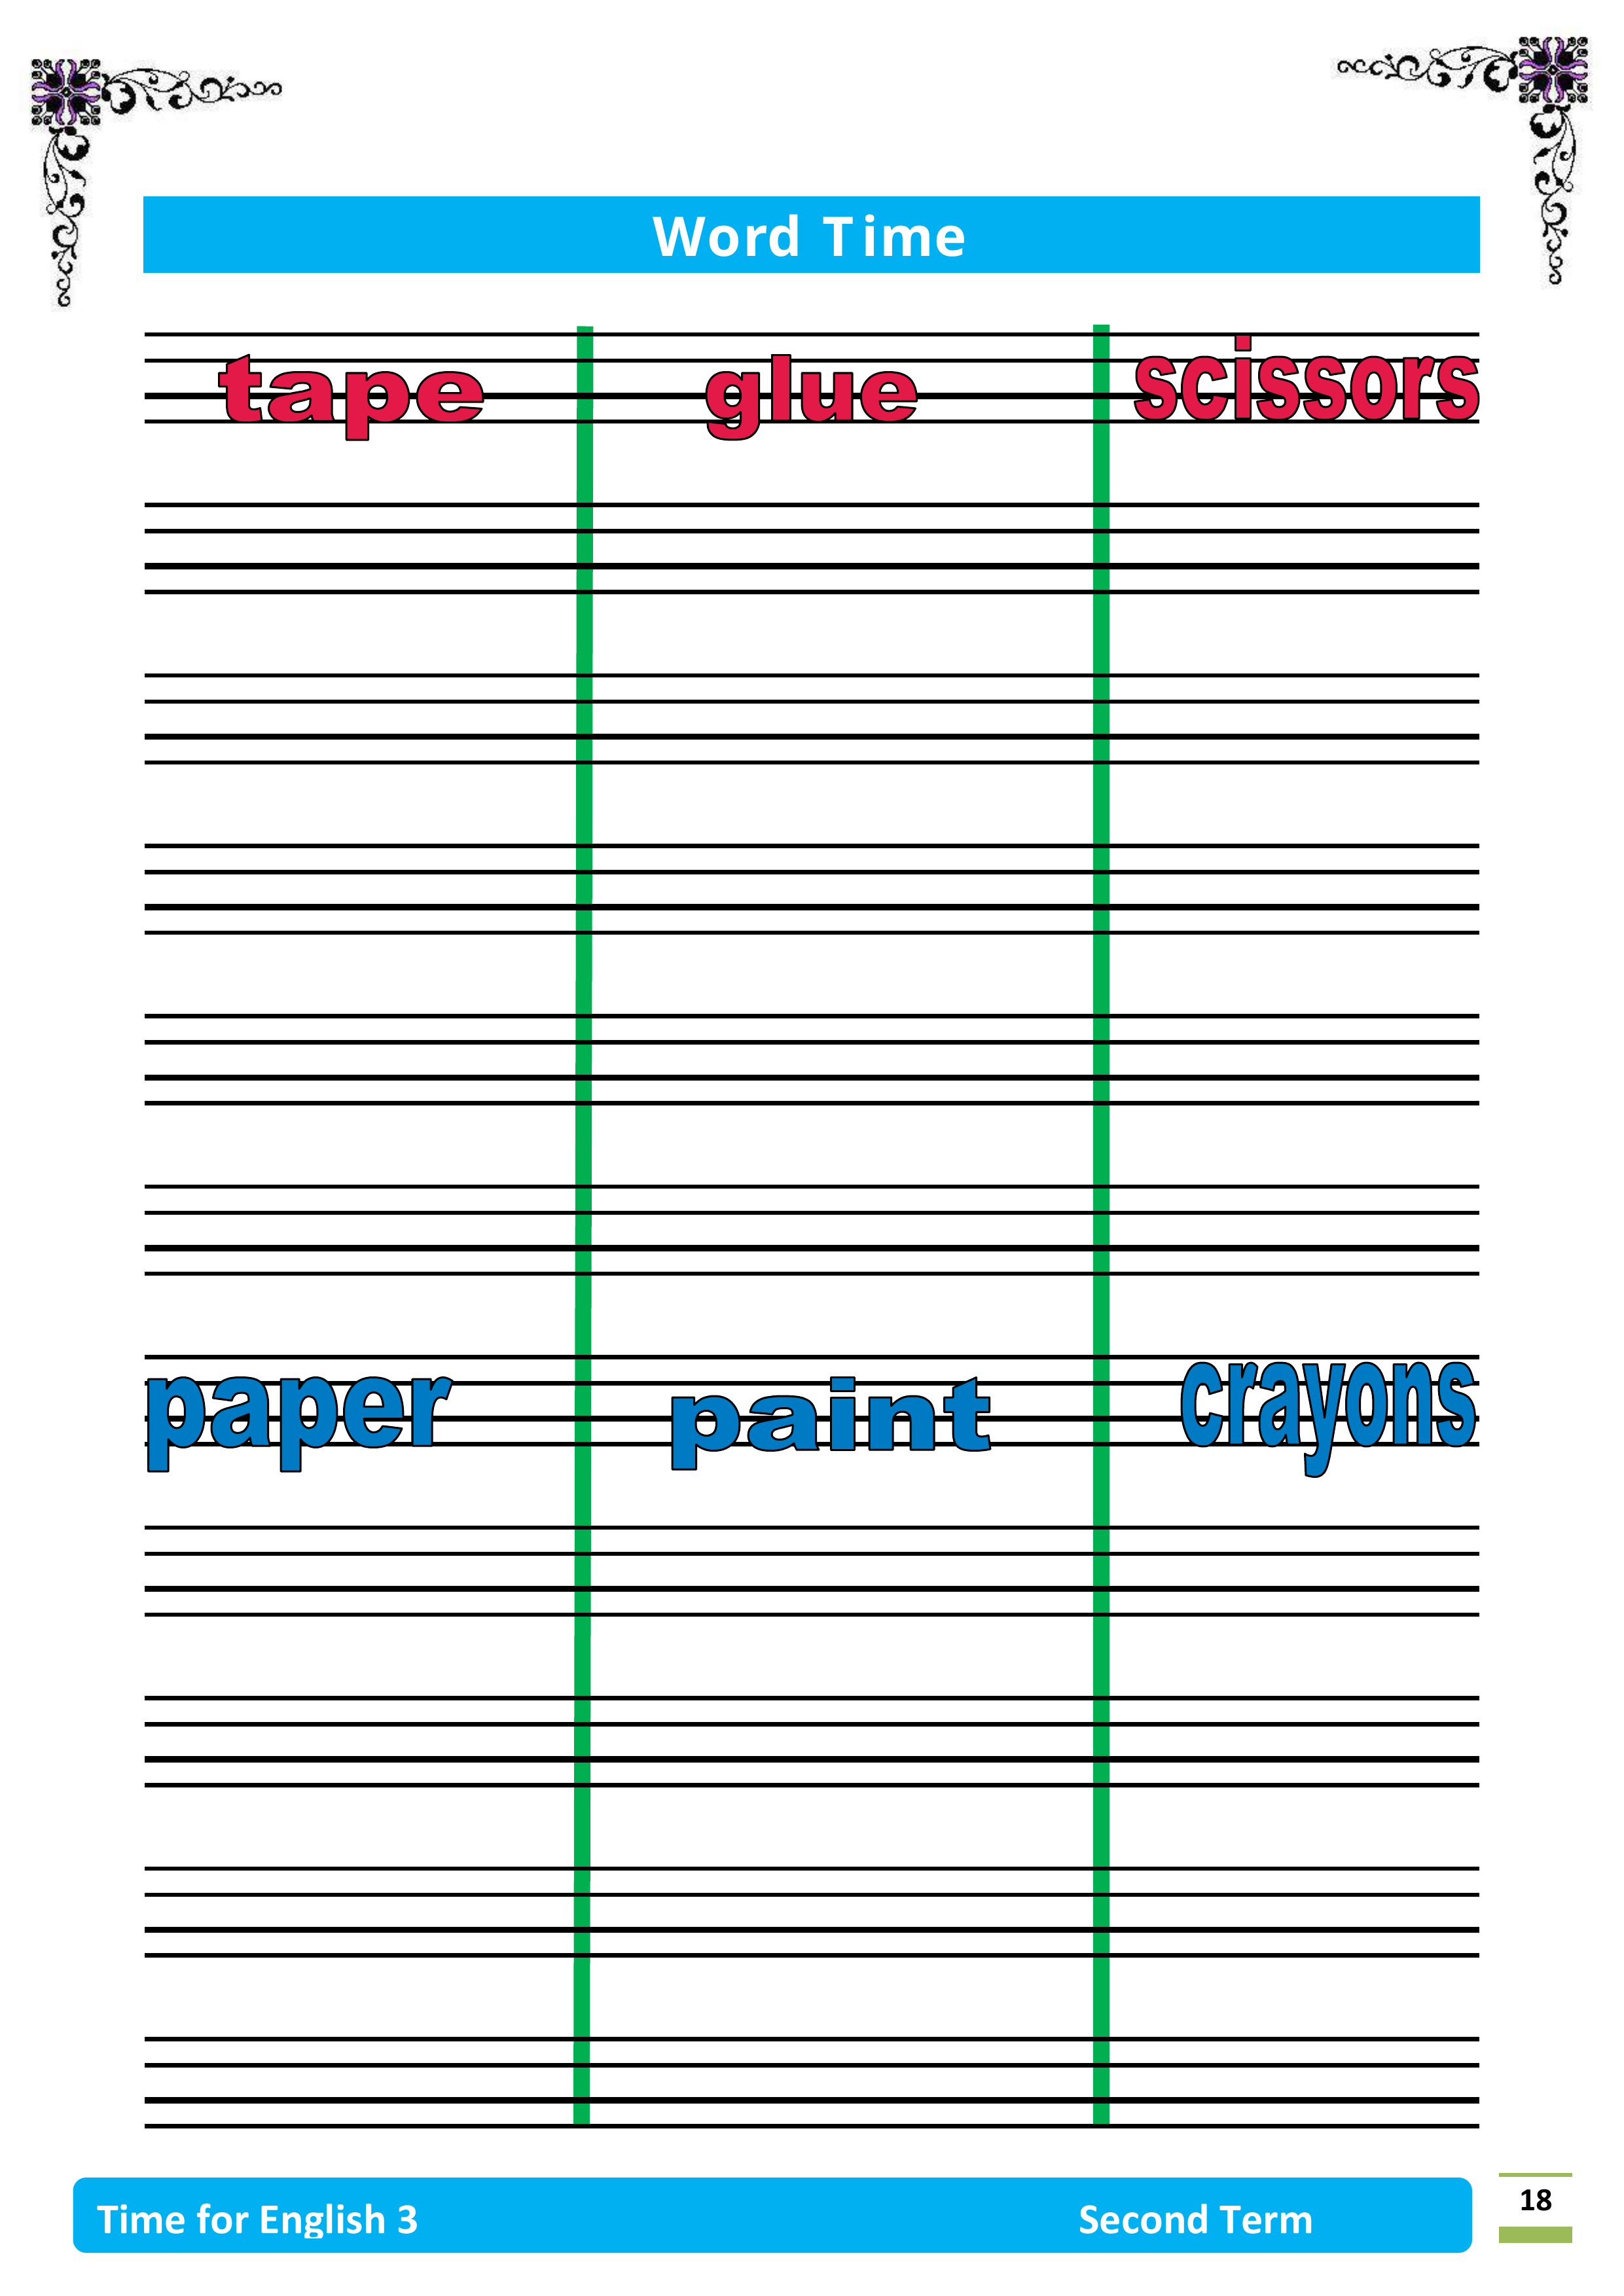 Word Time
tape glue scissors
paper paint crayons
Time for English 3 Second Term 18